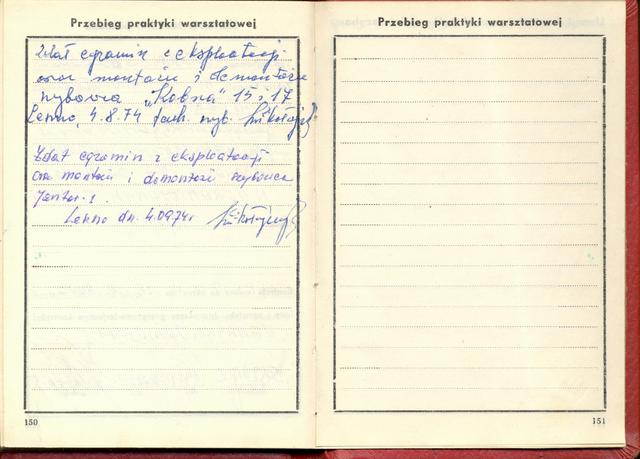 Przebieg praktyki warsztatowej
Zdał egzamin z eksploatacji
oraz montażu i demontażu
szybowca „Kobra" 15 i 17
Leszno, 4.8.74 tech. szyb.
Zdał egzamin z eksploatacji
oraz montażu i demontażu szybowca
Jantar-1.
Leszno dn. 4.09.74r
150
Przebieg praktyki warsztatowej
151